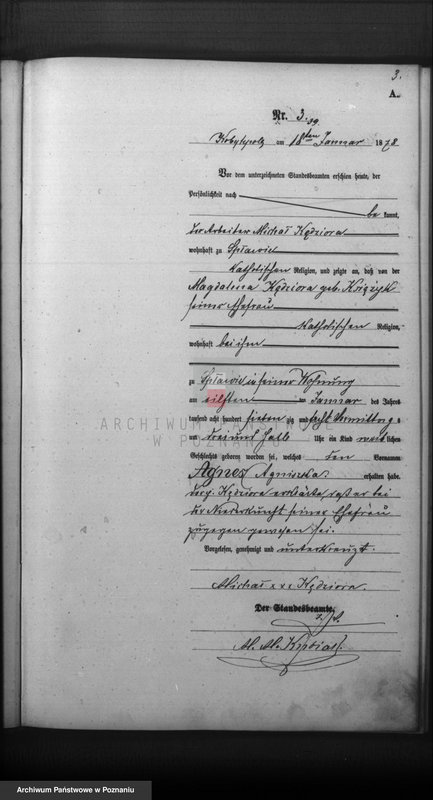 3.
A.
Nr. 3.
Kobylepole am 18ten Januar 1878
Vor dem unterzeichneten Standesbeamten erschien heute, der
Persönlichkeit nach
be kannt,
der Arbeiter Michał Kędziora
wohnhaft zu Spławie
katholischen Religion, und zeigte an, daß von der
Magdalena Kędziora geb.
seiner Ehefrau
katholischen Religion,
wohnhaft bei ihm
zu Spławie in seiner Wohnung
am eilften Januar des Jahres
tausend acht hundert sieben zig und acht Vormittags
um drei und halb Uhr ein Kind weib lichen
Geschlechts geboren worden sei, welches den Vornamen
Agnes (Agnieszka) erhalten habe.
Kędziora erklärte, daß er bei
der Niederkunft seiner Ehefrau
zugegen gewesen sei.
Vorgelesen, genehmigt und unterkreuzt.
Michał x x x Kędziora.
Der Standesbeamte.
ARCHIWUM PAŃSTWOWE
W POZNANIU
Archiwum Państwowe w Poznaniu